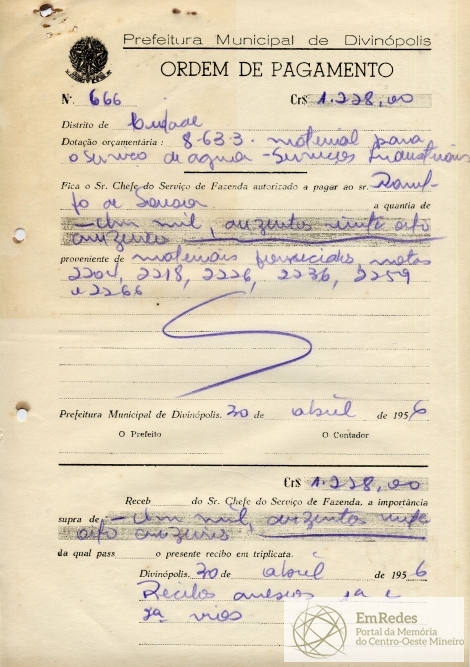 Prefeitura Municipal de Divinópolis
ORDEM DE PAGAMENTO
N. 666 Cr$ 1.228,00
Distrito de Cidade
Dotação orçamentária : 8-63-3. material para
o Serviço de agua - Serviços Industriais
Fica o Sr. Chefe do Serviço de Fazenda autorizado a pagar ao sr.
de Sousa a quantia de
- Um mil, duzentos vinte oito
cruzeiros
proveniente de materiais fornecidos, notas
2204, 2218, 2226, 2236, 2259
e 2266
Prefeitura Municipal de Divinópolis. 30 de abril de 1956
O Prefeito O Contador
Cr$ 1.228,00
Receb do Sr. Chefe do Serviço de Fazenda, a importância
supra de - Um mil, duzentos vinte
oito cruzeiros
da qual pass o presente recibo em triplicata.
Divinópolis, 30 de abril de 1956
Recibos anexos 1a e
2a vias
EmRedes
Portal da Memória
do Centro-Oeste Mineiro